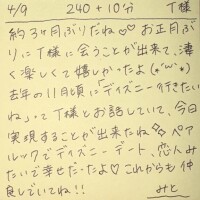 4/9 240+10分 T様
約3ヶ月ぶりだね♡♡お正月ぶ
りにT様に会うことが出来て、凄
く楽しくて嬉しかったよ(*´ω`*)
去年の11月頃に「ディズニー行きたい
ね」ってT様とお話していて、今日
実現することが出来たね ペア
ルックでディズニーデート、恋人み
たいで幸せだったよ♡これからも仲
良していてね!!
みと